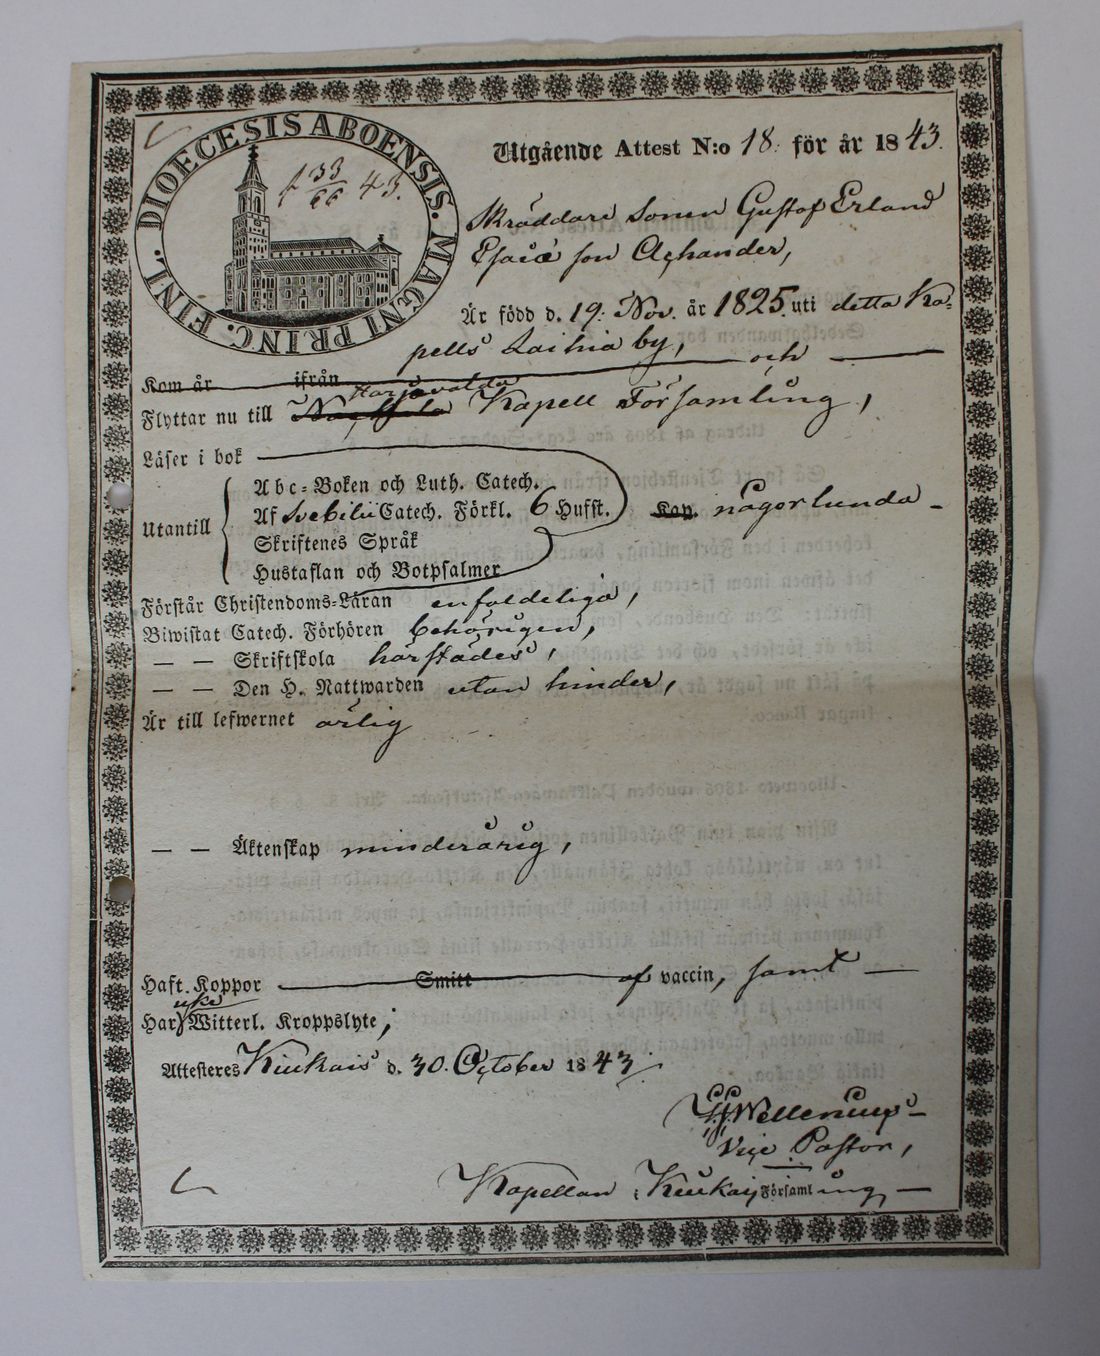 DIOECESIS ABOENSIS. MAGNI PRINC. FINL.
33
66 43.
Utgående Attest N:o 18. för år 1843.
Skräddare Sonen Gustaf Erland
Esaiæ son
Är född d. 19. Nov. år 1825. uti detta Ka-
pells Laihia by,
Kom år ifrån och
Harjavalda
Flyttar nu till Kapell Församling,
Läser i bok
Utantill
Abc-Boken och Luth. Catech.
Af Svebilii Catech. Förkl. 6 Hufst. Kap. någorlunda
Skriftenes Språk
Hustaflan och Botpsalmer
Förstår Christendoms-Läran enfaldeliga,
Biwistat Catech. Förhören behörigen,
— — Skriftskola härstädes,
— — Den H. Nattwarden utan hinder,
Är till lefwernet ärlig
— — Äktenskap minderårig,
Haft Koppor Smitt af vaccin, samt
icke
Har Witterl. Kroppslyte;
Attesteres Kiukais d. 30. October 1843.
Vice Pastor,
Kapellan i Kiukais Församlung